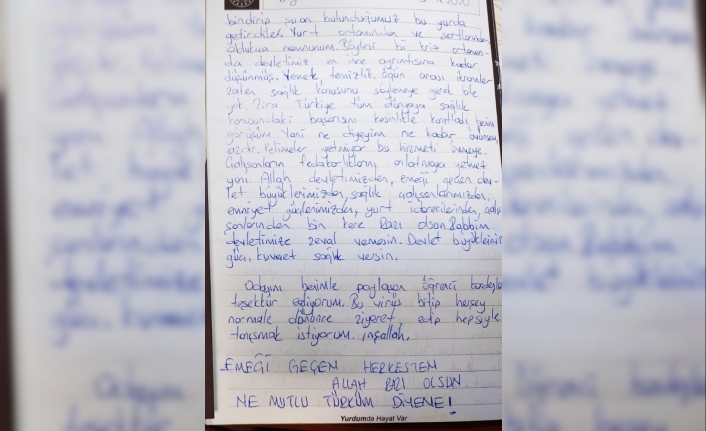 bindirip şu an bulunduğumuz bu yurda
getirdiler. Yurt ortamından ve şartlarından
oldukça memnunum. Böylesi bir kriz ortamın-
da devletimiz en ince ayrıntısına kadar
düşünmüş. Yemek, temizlik, öğün arası ikramlar
zaten sağlık konusunu söylemeye gerek bile
yok. Zira Türkiye tüm dünyaya sağlık
konusundaki başarısını kesinlikle kanıtladı benim
görüşüm. Yani ne diyeyim ne kadar övünsem
azdır. Kelimeler yetmiyor bu hizmeti övmeye.
Çalışanların fedakarlıklarını anlatmaya yetmez
yani. Allah devletimizden, emeği geçen dev-
let büyüklerimizden, sağlık çalışanlarımızdan,
emniyet güçlerimizden, yurt idarecilerinden, çalış
şanlarından bin kere Razı olsun. Rabbim
devletimize zeval vermesin. Devlet büyüklerimiz
güç, kuvvet sağlık versin.
Odayını benimle paylaşan öğrenci kardeşle
teşekkür ediyorum. Bu virüs bitip herşey
normale dönünce ziyaret edip hepsiyle
tanışmak istiyorum. inşallah.
EMEĞİ GEÇEN HERKESTEN
ALLAH RAZI OLSUN.
NE MUTLU TÜRKÜM DİYENE!
Yurdumda Hayat Var